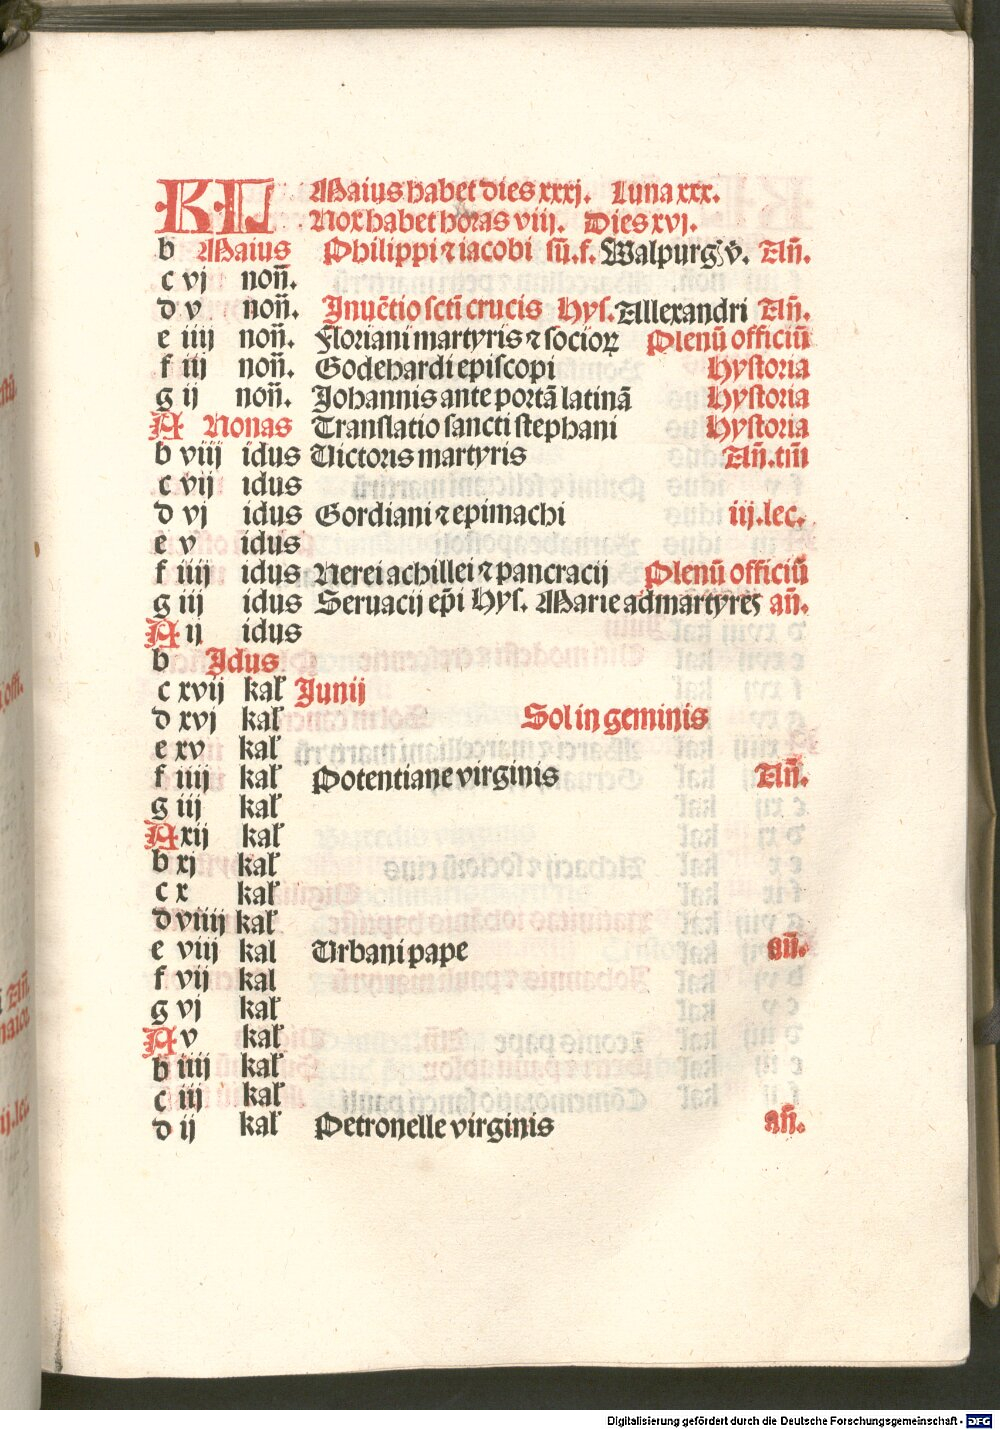 KL Maius habet dies xxxj. Luna xxx.
Nox habet horas viij. Dies xvj.
b Maius Philippi ⁊ iacobi sū. f. Walpurgꝭ v̄. An̄.
c vj non̄.
d v non̄. Inuēctio sctī crucis Hys. Allexandri An̄.
e iiij non̄. Floriani martyris ⁊ socioꝝ Plenū officiū
f iij non̄. Godehardi episcopi Hystoria
g ij non̄. Johannis ante portā latinā Hystoria
A Nonas Translatio sancti stephani Hystoria
b viij idus Victoris martyris An̄. tm̄
c vij idus
d vj idus Gordiani ⁊ epimachi iij. lec.
e v idus
f iiij idus Nerei achillei ⁊ pancracij Plenū officiū
g iij idus Seruacij ep̄i Hys. Marie ad martyres an̄.
A ij idus
b Idus
c xvij kal̛ Junij
d xvj kal̛ Sol in geminis
e xv kal̛
f iiij kal̛ Potentiane virginis An̄.
g iij kal̛
A xij kal̛
b xj kal̛
c x kal̛
d viiij kal̛
e viij kal Urbani pape an̄.
f vij kal
g vj kal̛
A v kal̛
b iiij kal̛
c iij kal̛
d ij kal̛ Petronelle virginis an̄.
Digitalisierung gefördert durch die Deutsche Forschungsgemeinschaft - DFG